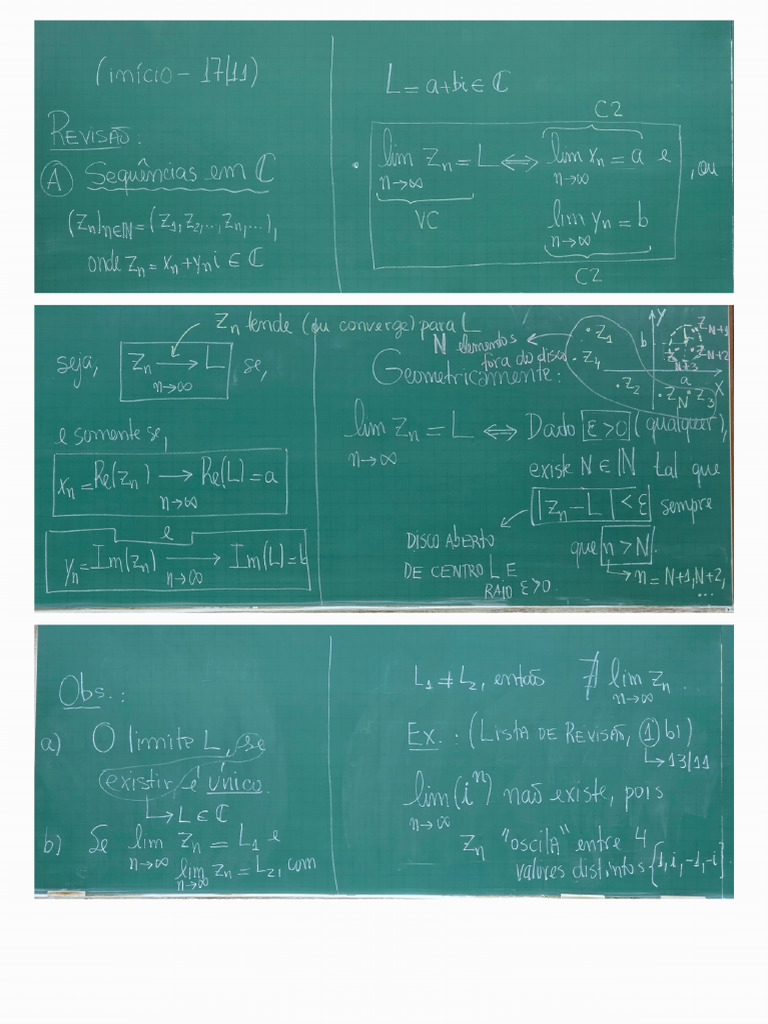 (início - 17/11)
REVISÃO:
(A) Sequências em ℂ
(Zn)n∈ℕ = (Z1, Z2, ..., Zn, ...),
onde Zn = xn + yn i ∈ ℂ
L = a+bi ∈ ℂ
C2
• lim Zn = L ⟺ lim xn = a e , ou
n→∞ n→∞
VC
lim yn = b
n→∞
C2
Zn tende (ou converge) para L
seja, Zn → L se,
n→∞
e somente se,
xn = Re(Zn) → Re(L) = a
n→∞
e
yn = Im(Zn) → Im(L) = b
n→∞
N elementos
fora do disco
Geometricamente:
Y
b
a
X
Z1
Z4
Z2
ZN
Z3
ZN+1
ZN+2
ZN+3
lim Zn = L ⟺ Dado ε>0 (qualquer),
n→∞
existe N ∈ ℕ tal que
|Zn - L| < ε sempre
que n > N.
→ n = N+1, N+2, ...
DISCO ABERTO
DE CENTRO L E
RAIO ε>0.
Obs.:
a) O limite L, se
existir é único.
↳ L ∈ ℂ
b) Se lim Zn = L1 e
n→∞
lim Zn = L2, com
n→∞
L1 ≠ L2, então ∄ lim Zn.
n→∞
Ex.: (LISTA DE REVISÃO, (1) b))
↳ 13/11
lim (iⁿ) não existe, pois
n→∞
Zn "oscila" entre 4
valores distintos {1, i, -1, -i}